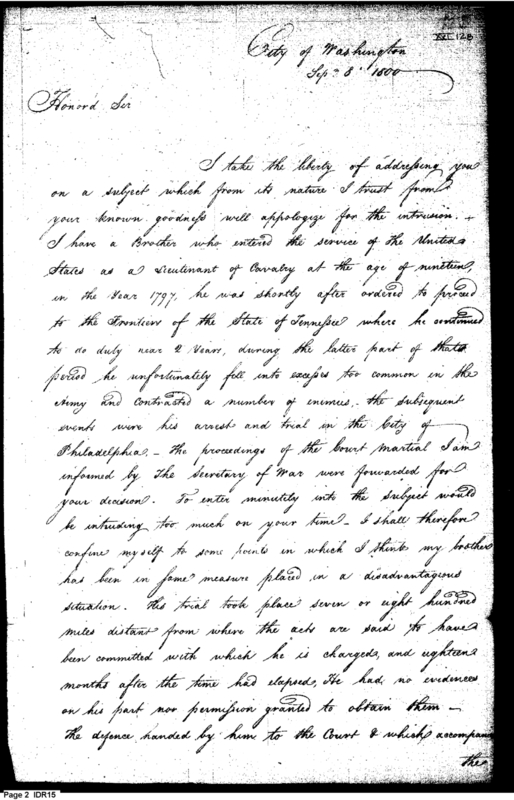 XVI 128
City of Washington
Sepr 8th 1800
Honord Sir
I take the liberty of addressing you
on a subject which from its nature I trust from
your known goodness will appologize for the intrusion. +
I have a Brother who entered the service of the United
States as a Lieutenant of Cavalry at the age of nineteen,
in the Year 1797, he was shortly after ordered to proceed
to the Frontiers of the State of Tennessee where he continued
to do duty near 2 Years, during the latter part of that
period he unfortunately fell into excesses too common in the
Army and contracted a number of enemies. the subsequent
events were his arrest and trial in the City of
Philadelphia. - The proceedings of the Court Martial I am
informed by The Secretary of War were forwarded for
your decision. To enter minutely into the subject would
be intruding too much on your time - I shall therefore
confine myself to some points in which I think my brother
has been in some measure placed in a disadvantageous
situation. His trial took place seven or eight hundred
miles distant from where the acts are said to have
been committed with which he is charged, and eighteen
months after the time had elapsed, He had no evidences
on his part nor permission granted to obtain them -
The defence handed by him to the Court & which accompany
the
Page 2 IDR15